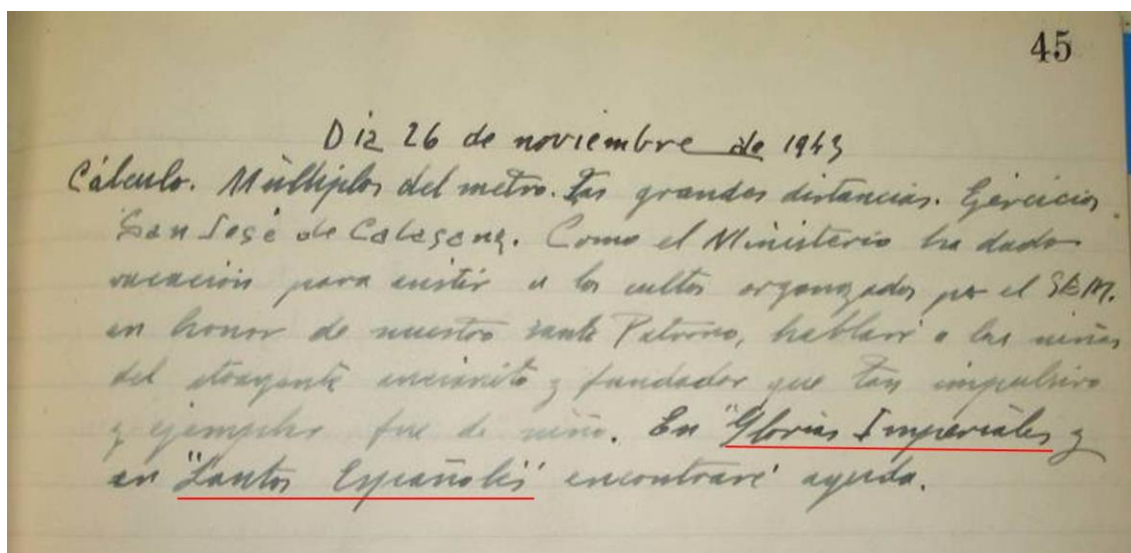 45
Dia 26 de noviembre de 1943
Cálculo. Múltiplos del metro. Las grandes distancias. Ejercicios.
San José de Calasanz. Como el Ministerio ha dado
vacación para asistir a los cultos organizados por el SEM.
en honor de nuestro santo Patrono, hablaré a las niñas
del atrayente ancianito y fundador que tan impulsivo
y ejemplar fue de niño. En "Glorias Imperiales y
en "Santos Españoles" encontraré ayuda.